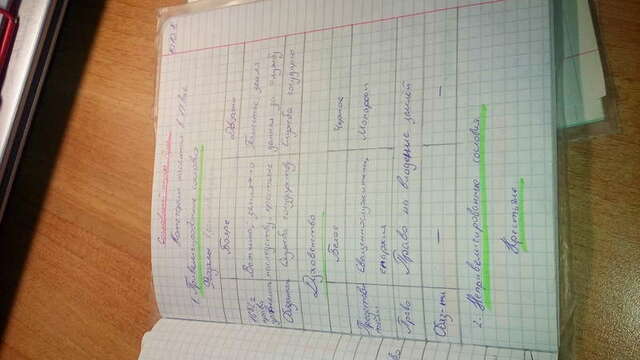 Сословный строй
Категории населения в 17 веке
1. Привилегированные сословия
Феодалы
Бояре Дворяне
права Вотчина, земля по Поместье, земля
наследству, крестьяне данная за службу
Обязан. Служба государству Служба государю
Духовенство
Белое Черное
Представи Священнослужители, Монархи
тели епархия
Право Право на владение землёй
Обяз-ти — —
2. Непривилегированные сословия
Крестьяне